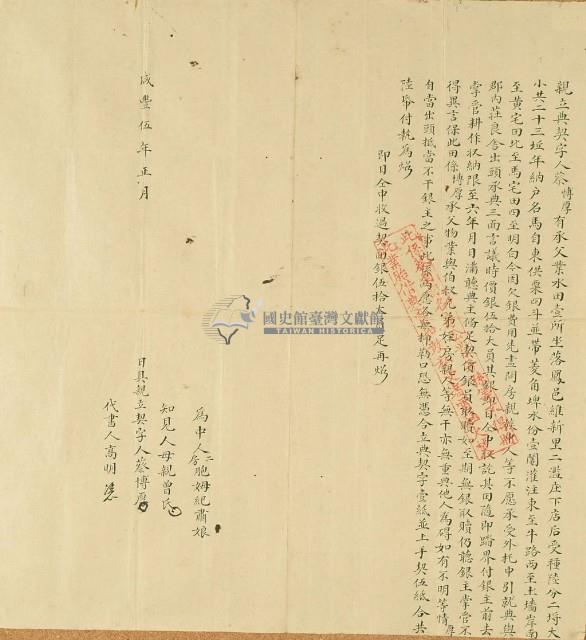 親立典契字人蔡博厚有承父業水田壹所坐落鳳邑維新里二濫庄下店后受種陸分二坵大
小共二十三坵年納户名馬自東供粟四斗並帶菱角埤水份壹鬮灌注東至牛路西至土墻岸南
至黄宅田北至馬宅田四至明白今因欠銀費用先盡問房親叔人等不愿承受外托中引就典與
郡內莊良舍出頭承典三面言議時價銀伍拾大員其銀即日仝中收訖其田隨即踏界付銀主前去
掌管耕作收納限至六年月日滿聽典主備足契價銀員取贖如至期無銀取贖仍聽銀主掌管不
得異言保此田係博厚承父物業與伯叔兄弟姪房親人等無干亦無重典他人為碍如有不明等情厚
自當出頭抵當不干銀主之事此係兩愿各無抑勒口恐無憑合立典契字壹紙並上手契伍紙合共
陸紙付執為炤
即日仝中收過契面銀伍拾大員足再炤
為中人二房胞姆紀肅娘
知見人母親曾氏
日具親立契字人蔡博厚
代書人高明
咸豐伍年正月
國史館臺灣文獻館
TAIWAN HISTORICA